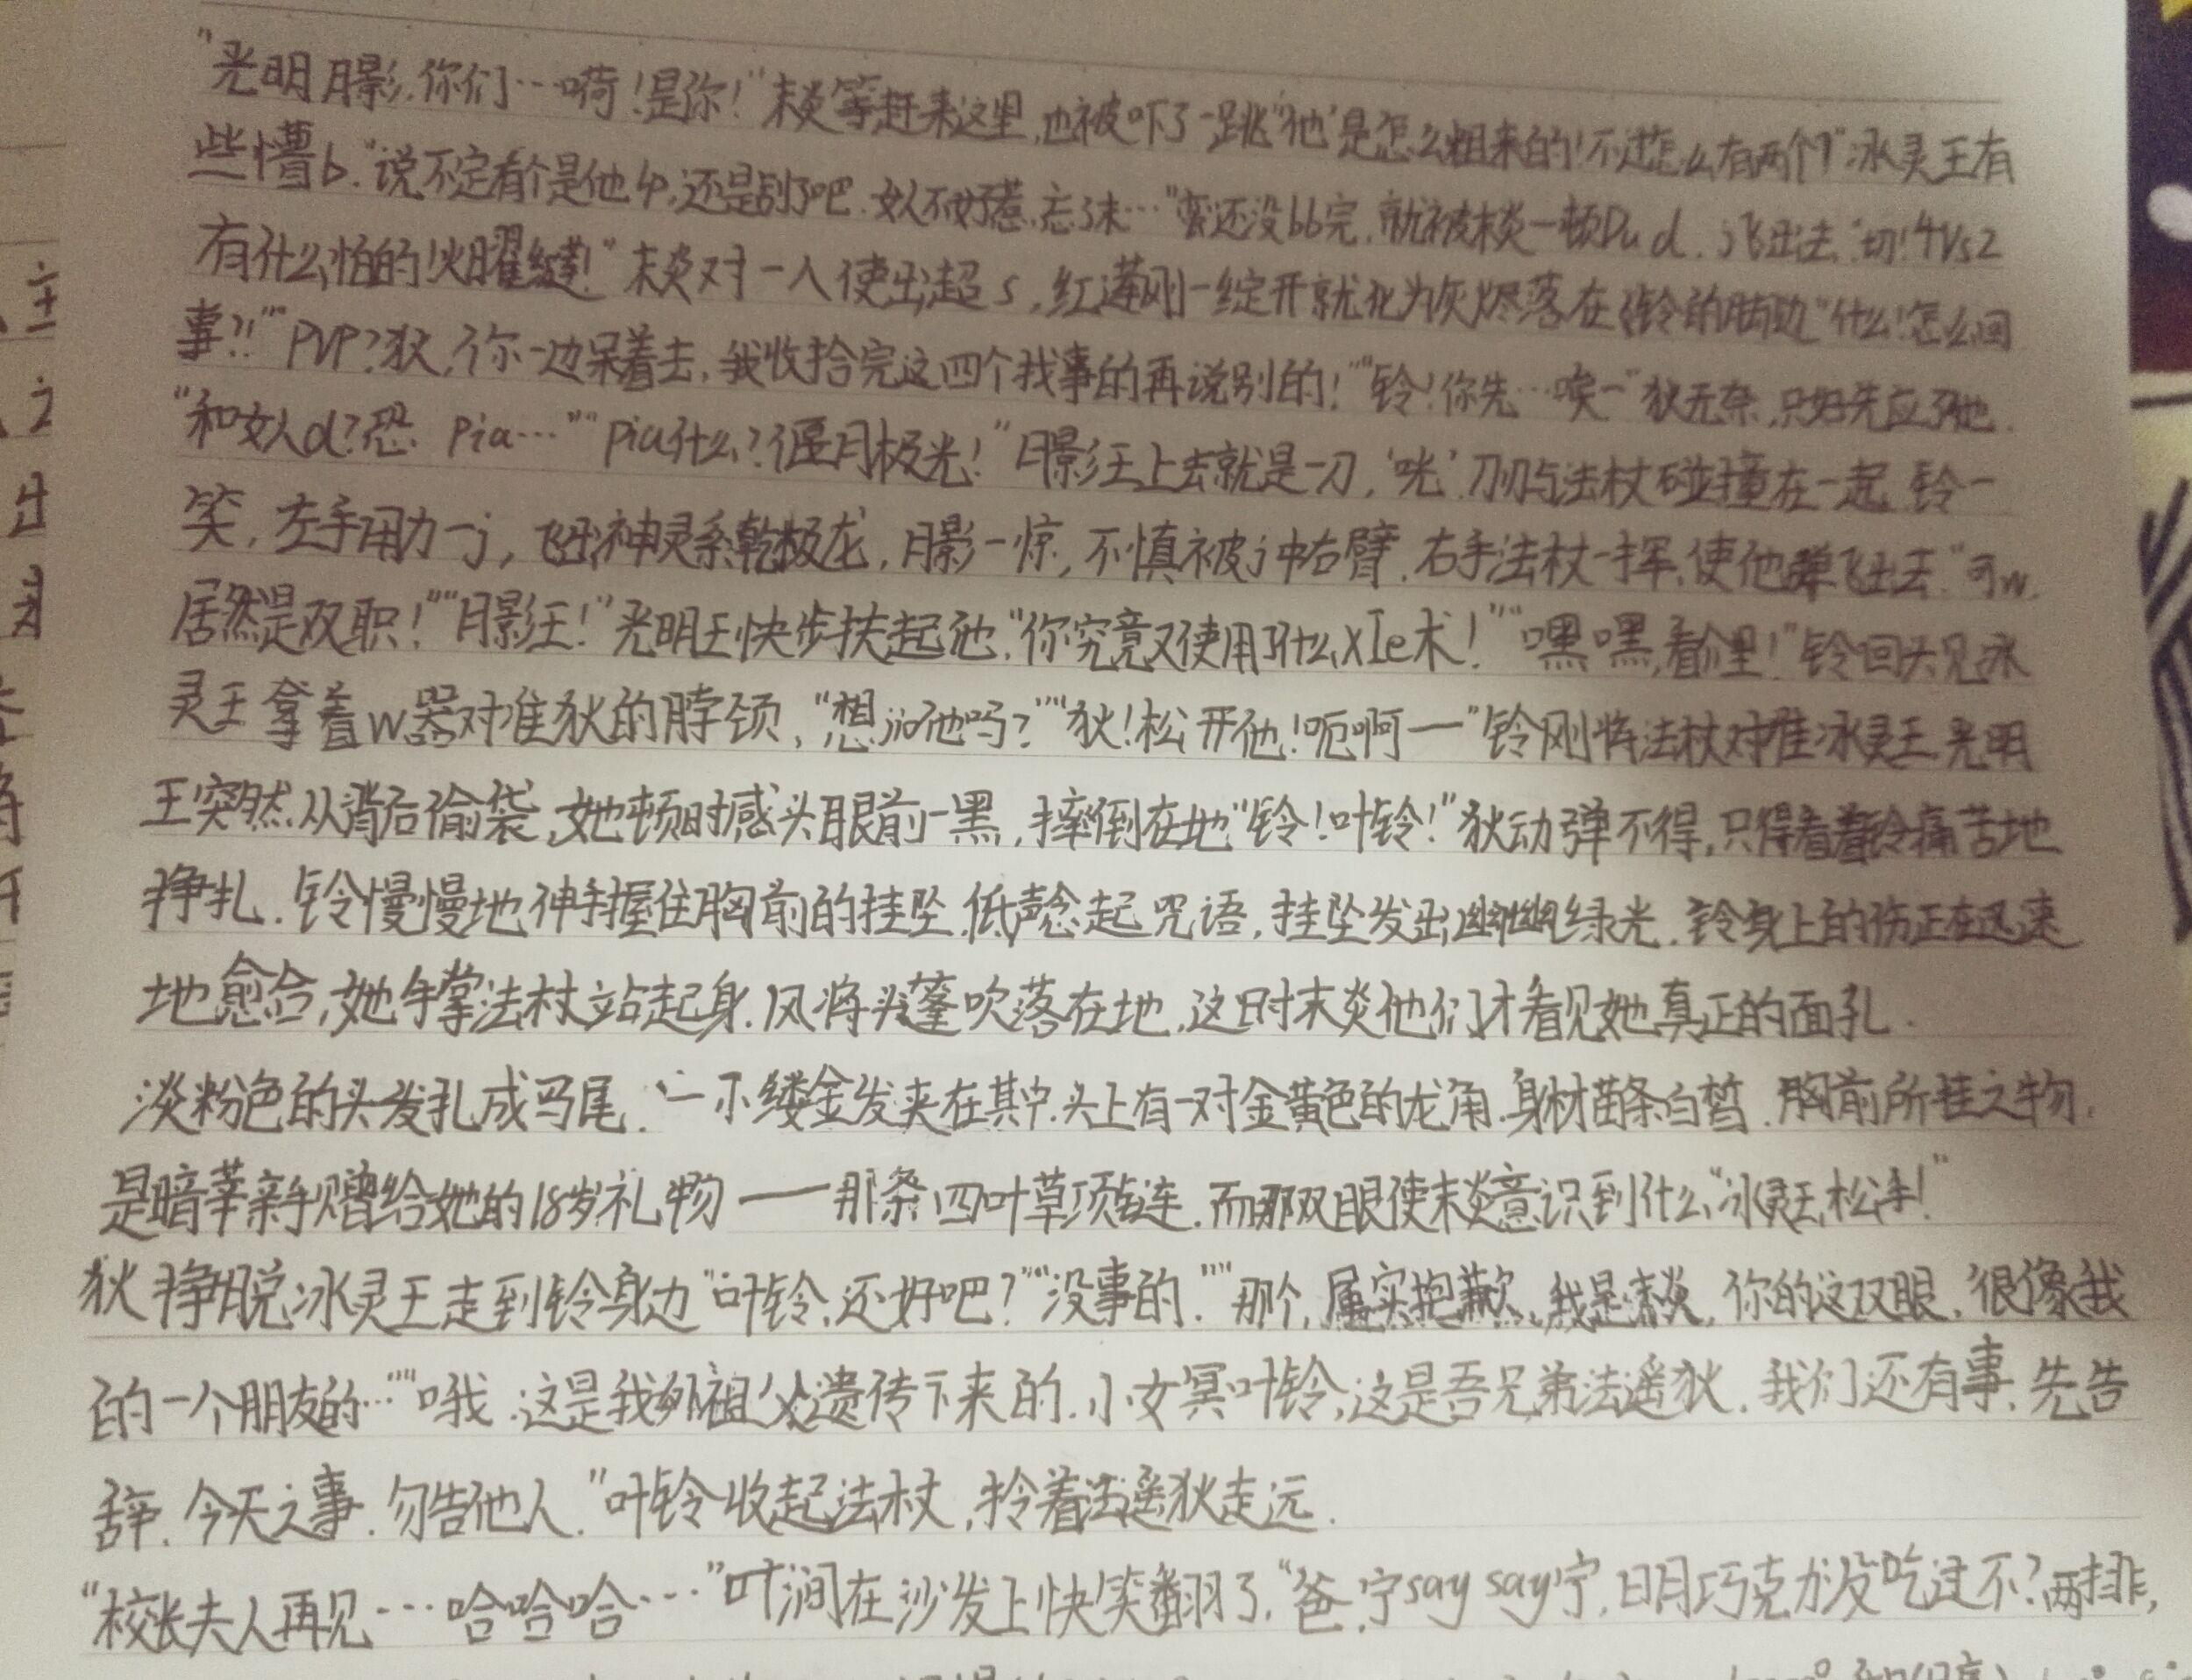 “光明月影,你们…嗬!是你!”末炎等赶来这里,也被吓了一跳“他是怎么粗来的!不过怎么有两个?”冰灵王有
些懵b.“说不定有个是他幻,还是别了吧.女人不好惹.忘了末…”蛮还没bb完,就被末炎一顿Du d.飞出去.“切!4Vs2
有什么怕的!火曜红莲!”末炎对一人使出超s,红莲刚一绽开就化为灰烬落在铃的脚边“什么!怎么回
事?!”“PVP?狄,你一边呆着去,我收拾完这四个找事的再说别的!”“铃!你先…唉一”狄无奈,只好先应了她.
“和女人d?恐. Pia…”“Pia什么?偃月极光!”月影王上去就是一刀,‘咣’.刀刃与法杖碰撞在一起.铃一
笑,左手用力一j,飞出神灵系乾极龙,月影一惊,不慎被j冲右臂.右手法杖一挥,使他弹飞出去.“可w.
居然是双职!”“月影王!”光明王快步扶起他.“你究竟又使用了什么xIe术!”“嘿嘿,看这里!”铃回头见冰
灵王拿着w器对准狄的脖颈,“想jiu他吗?”“狄!松开他!呃啊一”铃刚将法杖对准冰灵王.光明
王突然从背后偷袋,她顿时感头眼前一黑,摔倒在地“铃!叶铃!”狄动弹不得,只得看着铃痛苦地
挣扎.铃慢慢地伸手握住胸前的挂坠.低声念起咒语,挂坠发出幽幽绿光.铃身上的伤正在迅速
地愈合,她手掌法杖站起身.风将头篷吹落在地,这时末炎他们才看见她真正的面孔.
淡粉色的头发扎成马尾.一小缕金发夹在其中.头上有一对金黄色的龙角.身材苗条白皙.胸前所挂之物,
是暗莘亲手赠给她的18岁礼物——那条四叶草项链.而那双眼使末炎意识到什么“冰灵王,松手!”
狄挣脱冰灵王走到铃身边“叶铃,还好吧?”“没事的.”“那个,属实抱歉,我是末炎,你的这双眼,很像我
的一个朋友的…”“哦.这是我外祖父遗传下来的.小女冥叶铃,这是吾兄弟法遥狄.我们还有事,先告
辞.今天之事.勿告他人.”叶铃收起法杖,拎着法遥狄走远.
“校长夫人再见…哈哈哈…”叶涧在沙发上快笑翻了,“爸,宁say say宁,日月巧克力没吃过不?两排,